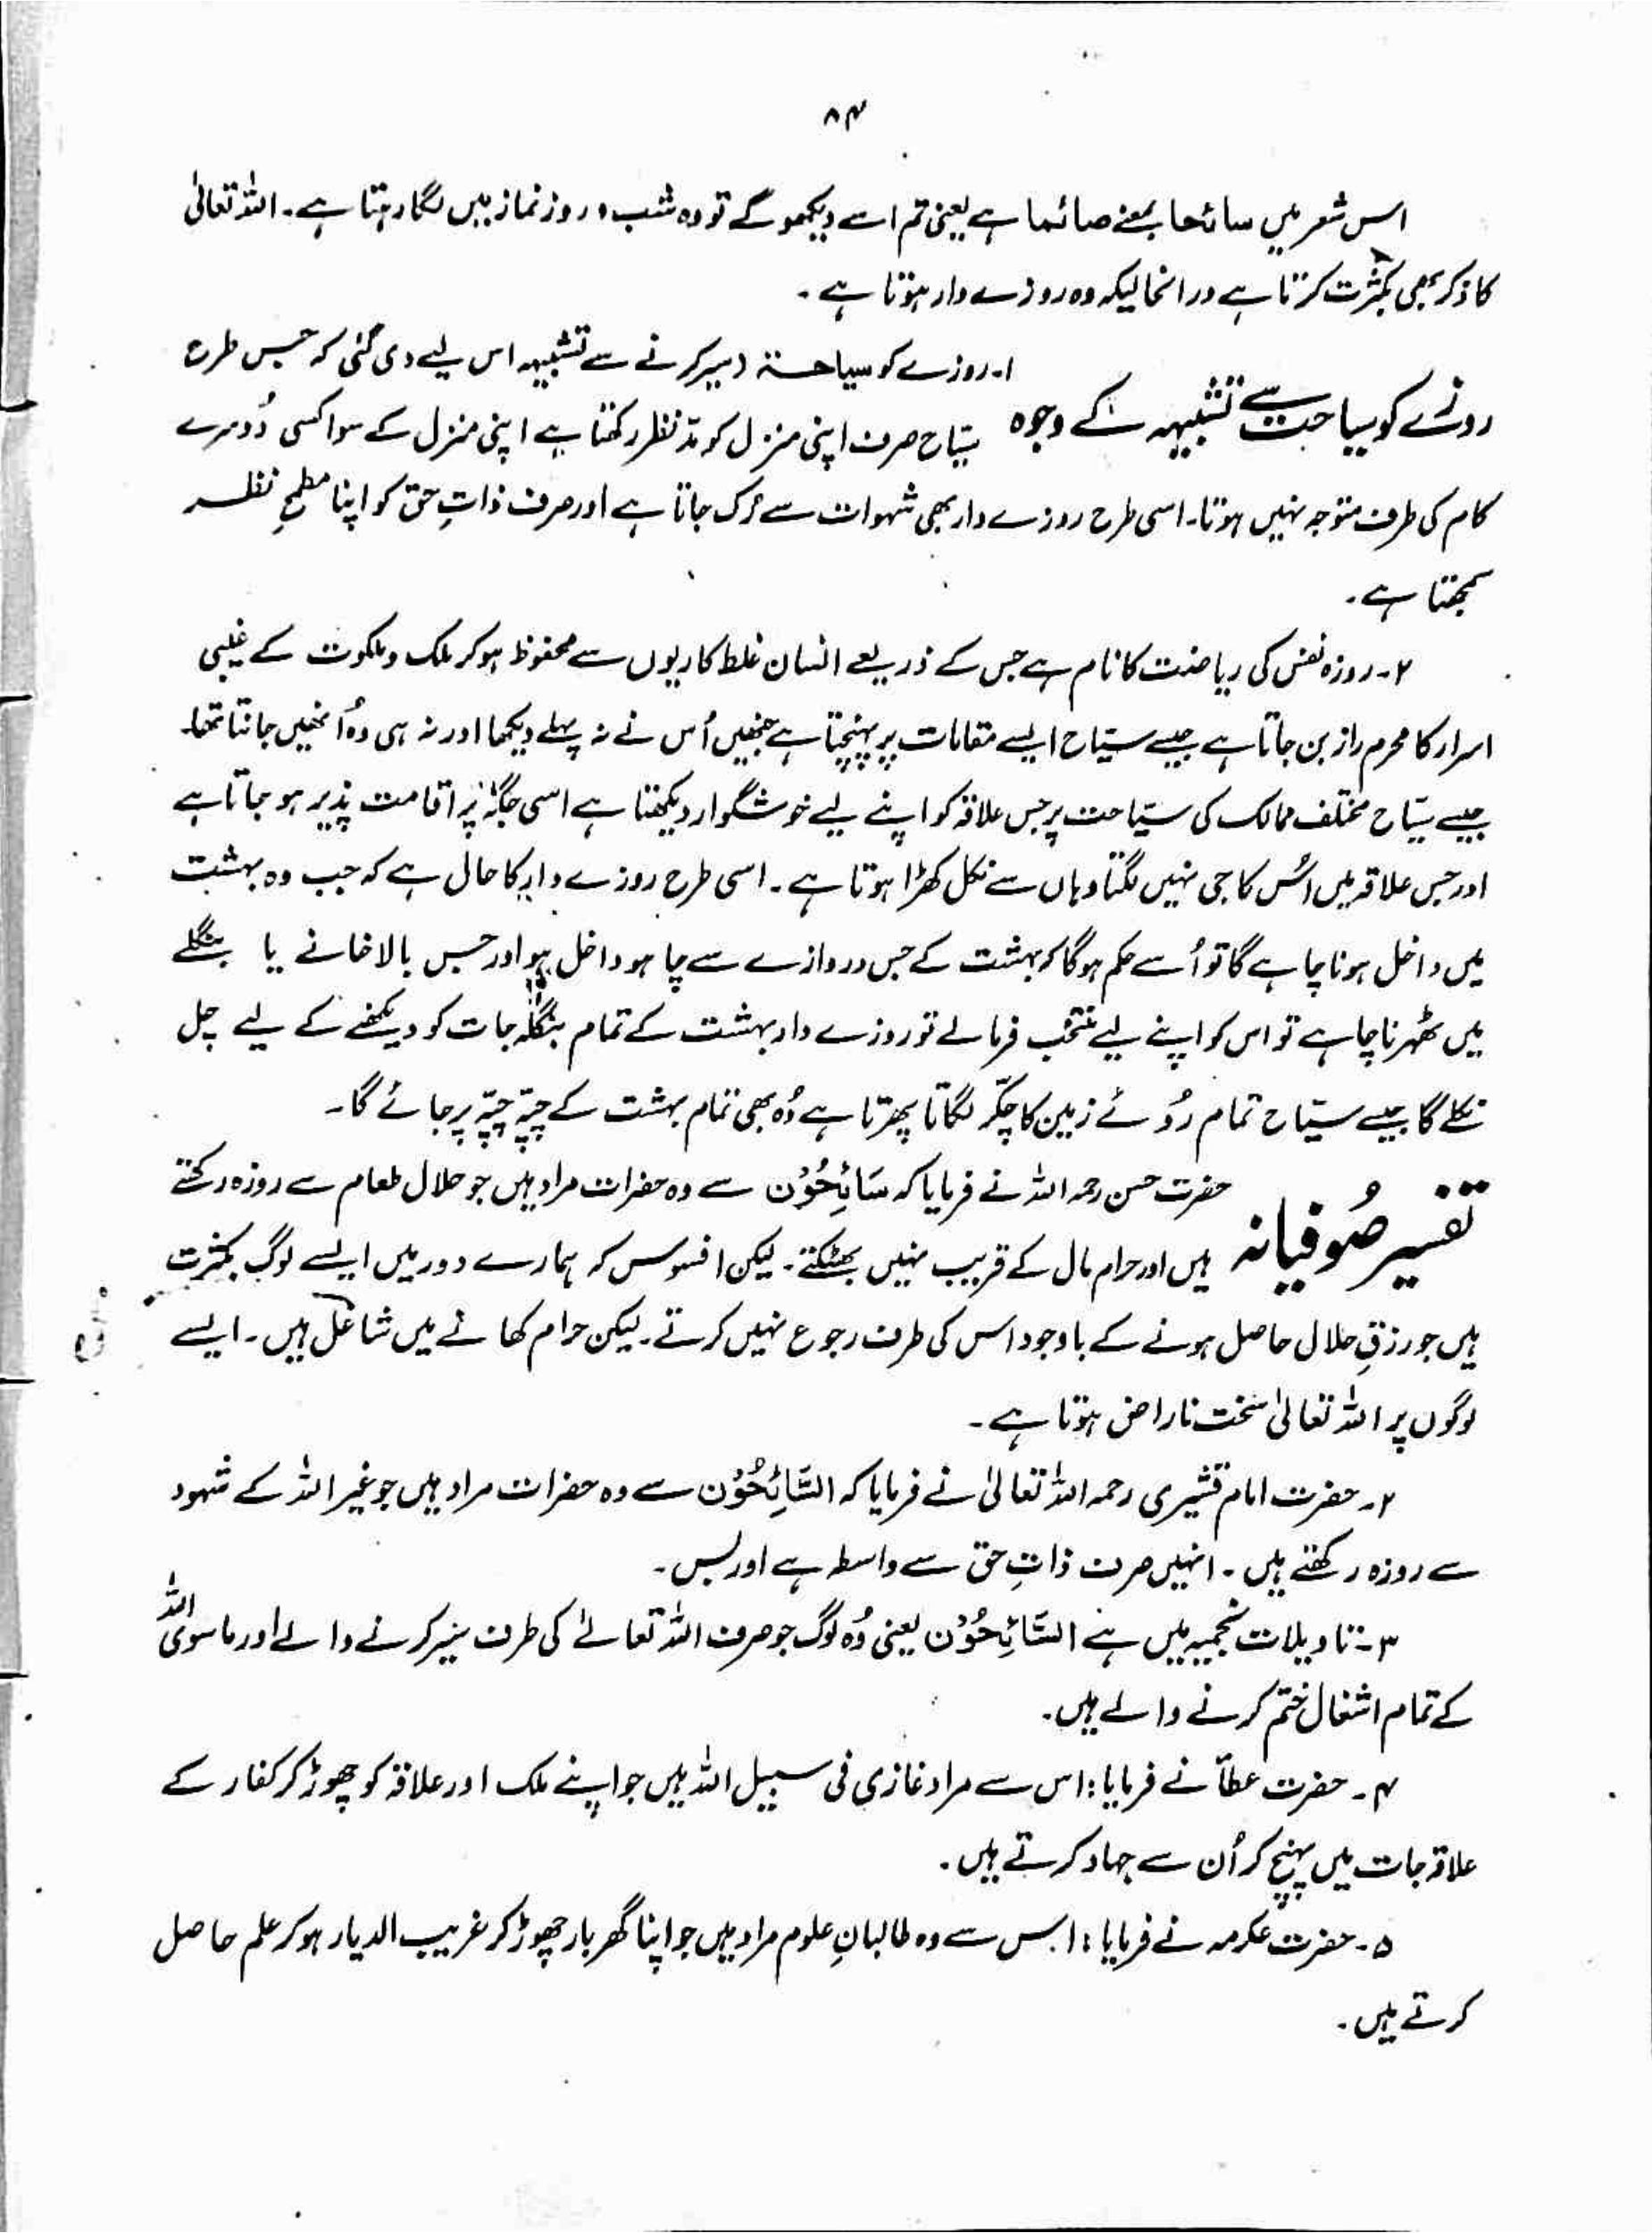 ۸۴
اس شعر میں سائحا بمعنے صائما ہے یعنی تم اسے دیکھو گے تو وہ شب و روز نماز میں لگا رہتا ہے۔ اللہ تعالیٰ
کا ذکر بھی بکثرت کرتا ہے درانحالیکہ وہ روزے دار ہوتا ہے۔
روزے کو سیاحت سے تشبیہہ کے وجوہ
۱۔ روزے کو سیاحۃ (سیر کرنے سے تشبیہہ اس لیے دی گئی کہ جس طرح
سیّاح صرف اپنی منزل کو مدّ نظر رکھتا ہے اپنی منزل کے سوا کسی دُوسرے
کام کی طرف متوجہ نہیں ہوتا۔ اسی طرح روزے دار بھی شہوات سے رُک جاتا ہے اور صرف ذاتِ حق کو اپنا مطمحِ نظر
سمجھتا ہے۔
۲۔ روزہ نفس کی ریاضت کا نام ہے جس کے ذریعے انسان غلط کاریوں سے محفوظ ہو کر ملک و ملکوت کے غیبی
اسرار کا محرم راز بن جاتا ہے جیسے سیّاح ایسے مقامات پر پہنچتا ہے جنھیں اُس نے نہ پہلے دیکھا اور نہ ہی وہُ انھیں جانتا تھا۔
جیسے سیّاح مختلف ممالک کی سیّاحت پر جس علاقہ کو اپنے لیے خوشگوار دیکھتا ہے اسی جگہ پر اقامت پذیر ہو جاتا ہے
اور جس علاقہ میں اسُ کا جی نہیں لگتا وہاں سے نکل کھڑا ہوتا ہے۔ اسی طرح روزے دار کا حال ہے کہ جب وہ بہشت
میں داخل ہونا چاہے گا تو اُسے حکم ہو گا کہ بہشت کے جس دروازے سے چاہو داخل ہو اور جس بالاخانے یا بنگلے
میں ٹھہرنا چاہے تو اس کو اپنے لیے منتخب فرما لے تو روزے دار بہشت کے تمام بنگلہ جات کو دیکھنے کے لیے چل
نکلے گا جیسے سیّاح تمام رُوئے زمین کا چکّر لگاتا پھرتا ہے وُہ بھی تمام بہشت کے چپّہ چپّہ پر جائے گا۔
تفسیر صُوفیانہ
حضرت حسن رحمہ اللہ نے فرمایا کہ سَائِحُوْن سے وہ حضرات مراد ہیں جو حلال طعام سے روزہ رکھتے
ہیں اور حرام مال کے قریب نہیں بھٹکتے۔ لیکن افسوس کہ ہمارے دور میں ایسے لوگ بکثرت
ہیں جو رزقِ حلال حاصل ہونے کے باوجود اس کی طرف رجوع نہیں کرتے۔ لیکن حرام کھانے میں شاغل ہیں۔ ایسے
لوگوں پر اللہ تعالیٰ سخت ناراض ہوتا ہے۔
۲۔ حضرت امام قشیری رحمہ اللہ تعالیٰ نے فرمایا کہ السَّائِحُوْن سے وہ حضرات مراد ہیں جو غیر اللہ کے شہود
سے روزہ رکھتے ہیں۔ انہیں صرف ذاتِ حق سے واسطہ ہے اور بس۔
۳۔ تاویلات نجمیہ میں ہے السَّائِحُوْن یعنی وُہ لوگ جو صرف اللہ تعالےٰ کی طرف سیر کرنے والے اور ماسوی اللہ
کے تمام اشغال ختم کرنے والے ہیں۔
۴۔ حضرت عطآ نے فرمایا: اس سے مراد غازی فی سبیل اللہ ہیں جو اپنے ملک اور علاقہ کو چھوڑ کر کفار کے
علاقہ جات میں پہنچ کر اُن سے جہاد کرتے ہیں۔
۵۔ حضرت عکرمہ نے فرمایا: اس سے وہ طالبانِ علوم مراد ہیں جو اپنا گھر بار چھوڑ کر غریب الدیار ہو کر علم حاصل
کرتے ہیں۔